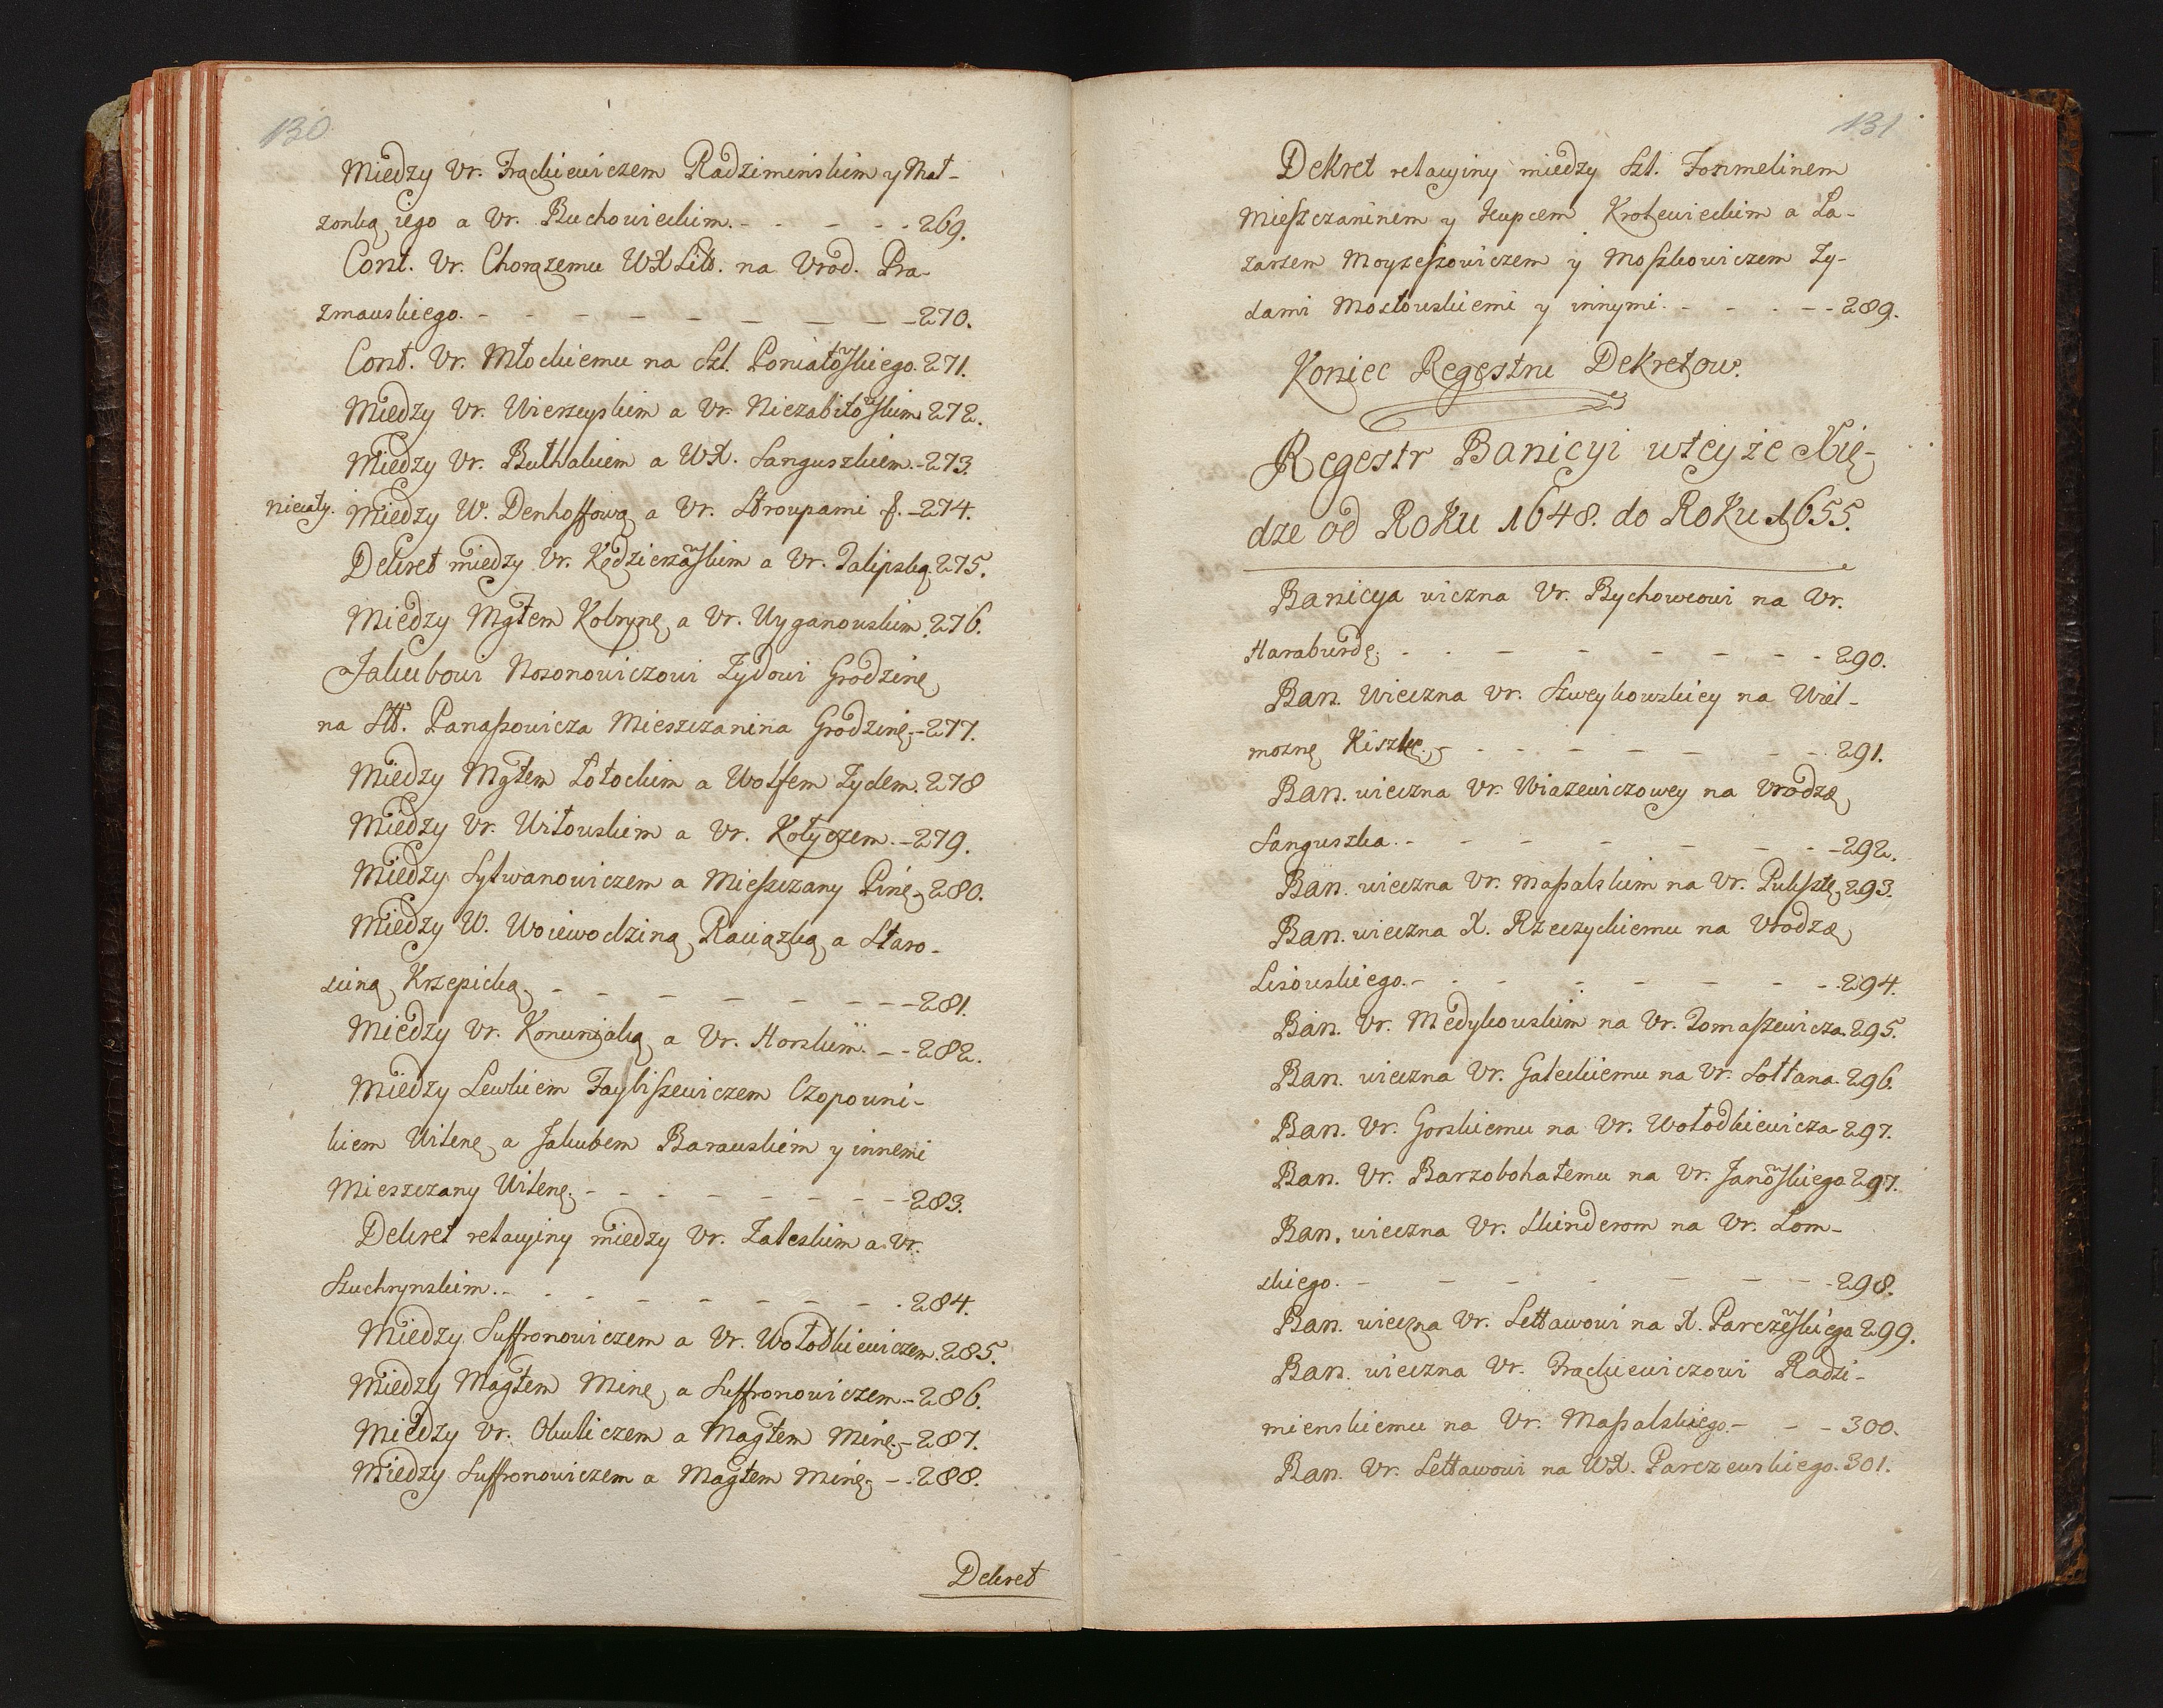 130
Między Ur. Frąckiewiczem Radziminskim y Mał-
zonką iego a Ur. Buchowieckim. - - - - - 269.
Cont. Ur. Chorązemu WXLitt. na Urod. Pra-
zmawskiego. - - - - - - - - - 270.
Cont. Ur. Młockiemu na Szl. Poniatowskiego. 271.
Między Ur. Wierzeyskim a Ur. Niezabitowskim 272.
Między Ur. Buthakiem a WX. Sanguszkiem. - 273.
niecały. Między W. Denhoffową a Ur. Stroupami f. - 274.
Dekret między Ur. Kędzierzawskim a Ur. Talipską 275.
Między Mgtem Kobrynę, a Ur. Wyganowskim. 276.
Jakubowi Nosonowiczowi Zydowi Grodzinę,
na Stt. Panaszowicza Mieszczanina Grodzinę, - 277.
Między Mgtem Łotockim a Wolfem Zydem. 278
Między Ur. Witowskim a Ur. Kotyczem. - 279.
Między Sylwanowiczem a Mieszczany Pinę, - 280.
Między W. Woiewodziną Raciązką, a Staro-
sciną Krzepicką. - - - - - - - - 281.
Między Ur. Konunjaką, a Ur. Horskim. - - 282.
Między Lewkiem Faybiszewiczem Czopowni-
kiem Wilenę, a Jakubem Barauskim y innemi
Mieszczany Wilenę. - - - - - - - - 283.
Dekret retacyiny między Ur. Zaleskim a Ur.
Szuchrynskim. - - - - - - - - 284.
Między Suffronowiczem a Ur. Wołodkiewiczem. 285.
Między Magtem Minę, a Suffronowiczem. - 286.
Między Ur. Okuliczem a Magtem Minę, - 287.
Między Suffronowiczem a Magtem Minę, - - 288.
Dekret
131
Dekret retacyiny miedzy Szl. Formelinem
Mieszczaninem y Kupcem Krolewieckim a Ła-
zarzem Moyzeszowiczem y Moszkowiczem Zy-
dami Mostowskiemi y innymi. - - - - - 289.
Koniec Regestru Dekretow.
Regestr Banicyi wteyże Xię-
dze od Roku 1648. do Roku 1655.
Banicya wiczna Ur. Bychowcowi na Ur.
Haraburdę. - - - - - - - - 290.
Ban. Wieczna Ur. Szweykowskiey na Wiel-
moznę Kiszkę. - - - - - - - - 291.
Ban. wieczna Ur. Wiazewiczowey na Urodzę
Sanguszka. - - - - - - - - 292.
Ban. wieczna Ur. Masalskim na Ur. Puksztę, 293.
Ban. wieczna X. Rzeczyckiemu na Urodzę
Lisowskiego. - - - - - - - - 294.
Ban. Ur. Medykowskim na Ur. Tomaszewicza. 295.
Ban. wieczna Ur. Gałeckiemu na Ur. Sołtana. 296.
Ban. Ur. Gorskiemu na Ur. Wołodkiewicza. 297.
Ban. Ur. Barzobohatemu na Ur. Janowskiego 297.
Ban. wieczna Ur. Skinderom na Ur. Lom-
skiego. - - - - - - - - 298.
Ban. wieczna Ur. Lettawowi na X. Parczewskiego 299.
Ban. wieczna Ur. Frąckiewiczowi Radzi-
mienskiemu na Ur. Masalskiego. - - - 300.
Ban. Ur. Lettawowi na WX. Parczewskiego. 301.